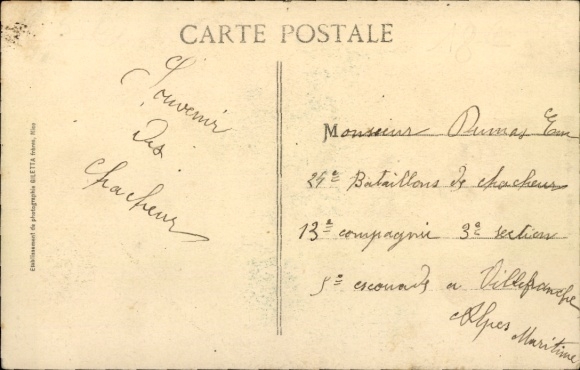 CARTE POSTALE
Souvenir
des
chacheur
Monsieur Dumas Em
24e Bataillons de chacheur
13e compagnie 3e section
5e escouade a Villefranche
Alpes Maritime
Etablissement de photographie GILETTA frères, Nice